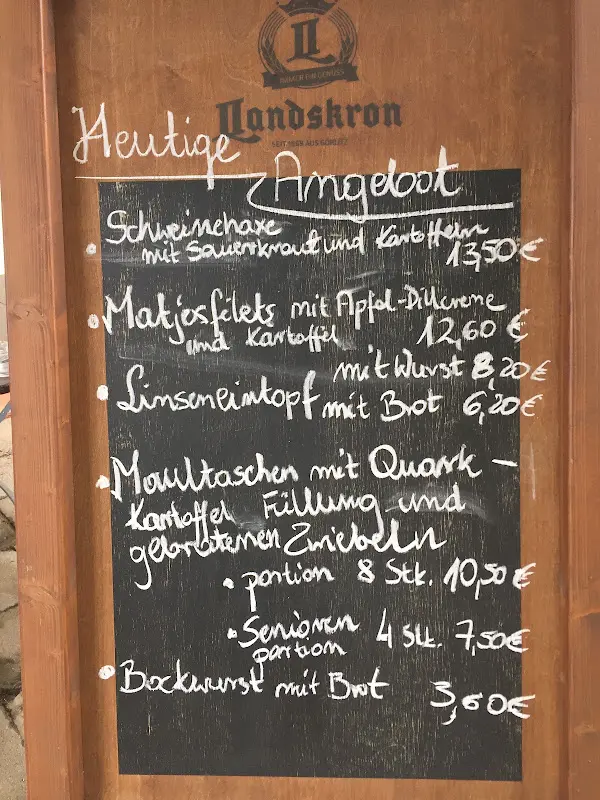 Landskron
Heutige
Angebot
Schweinehaxe
mit Sauerkraut und Kartoffeln 13,50 €
Matjesfilets mit Apfel-Dillcreme
und Kartoffel 12,60 €
mit Wurst 8,20 €
Linseneintopf mit Brot 6,20 €
Maultaschen mit Quark -
Kartoffel Füllung und
gebratenen Zwiebeln
portion 8 Stk. 10,50 €
Senioren 4 Stk. 7,50 €
portion
Bockwurst mit Brot 3,60 €